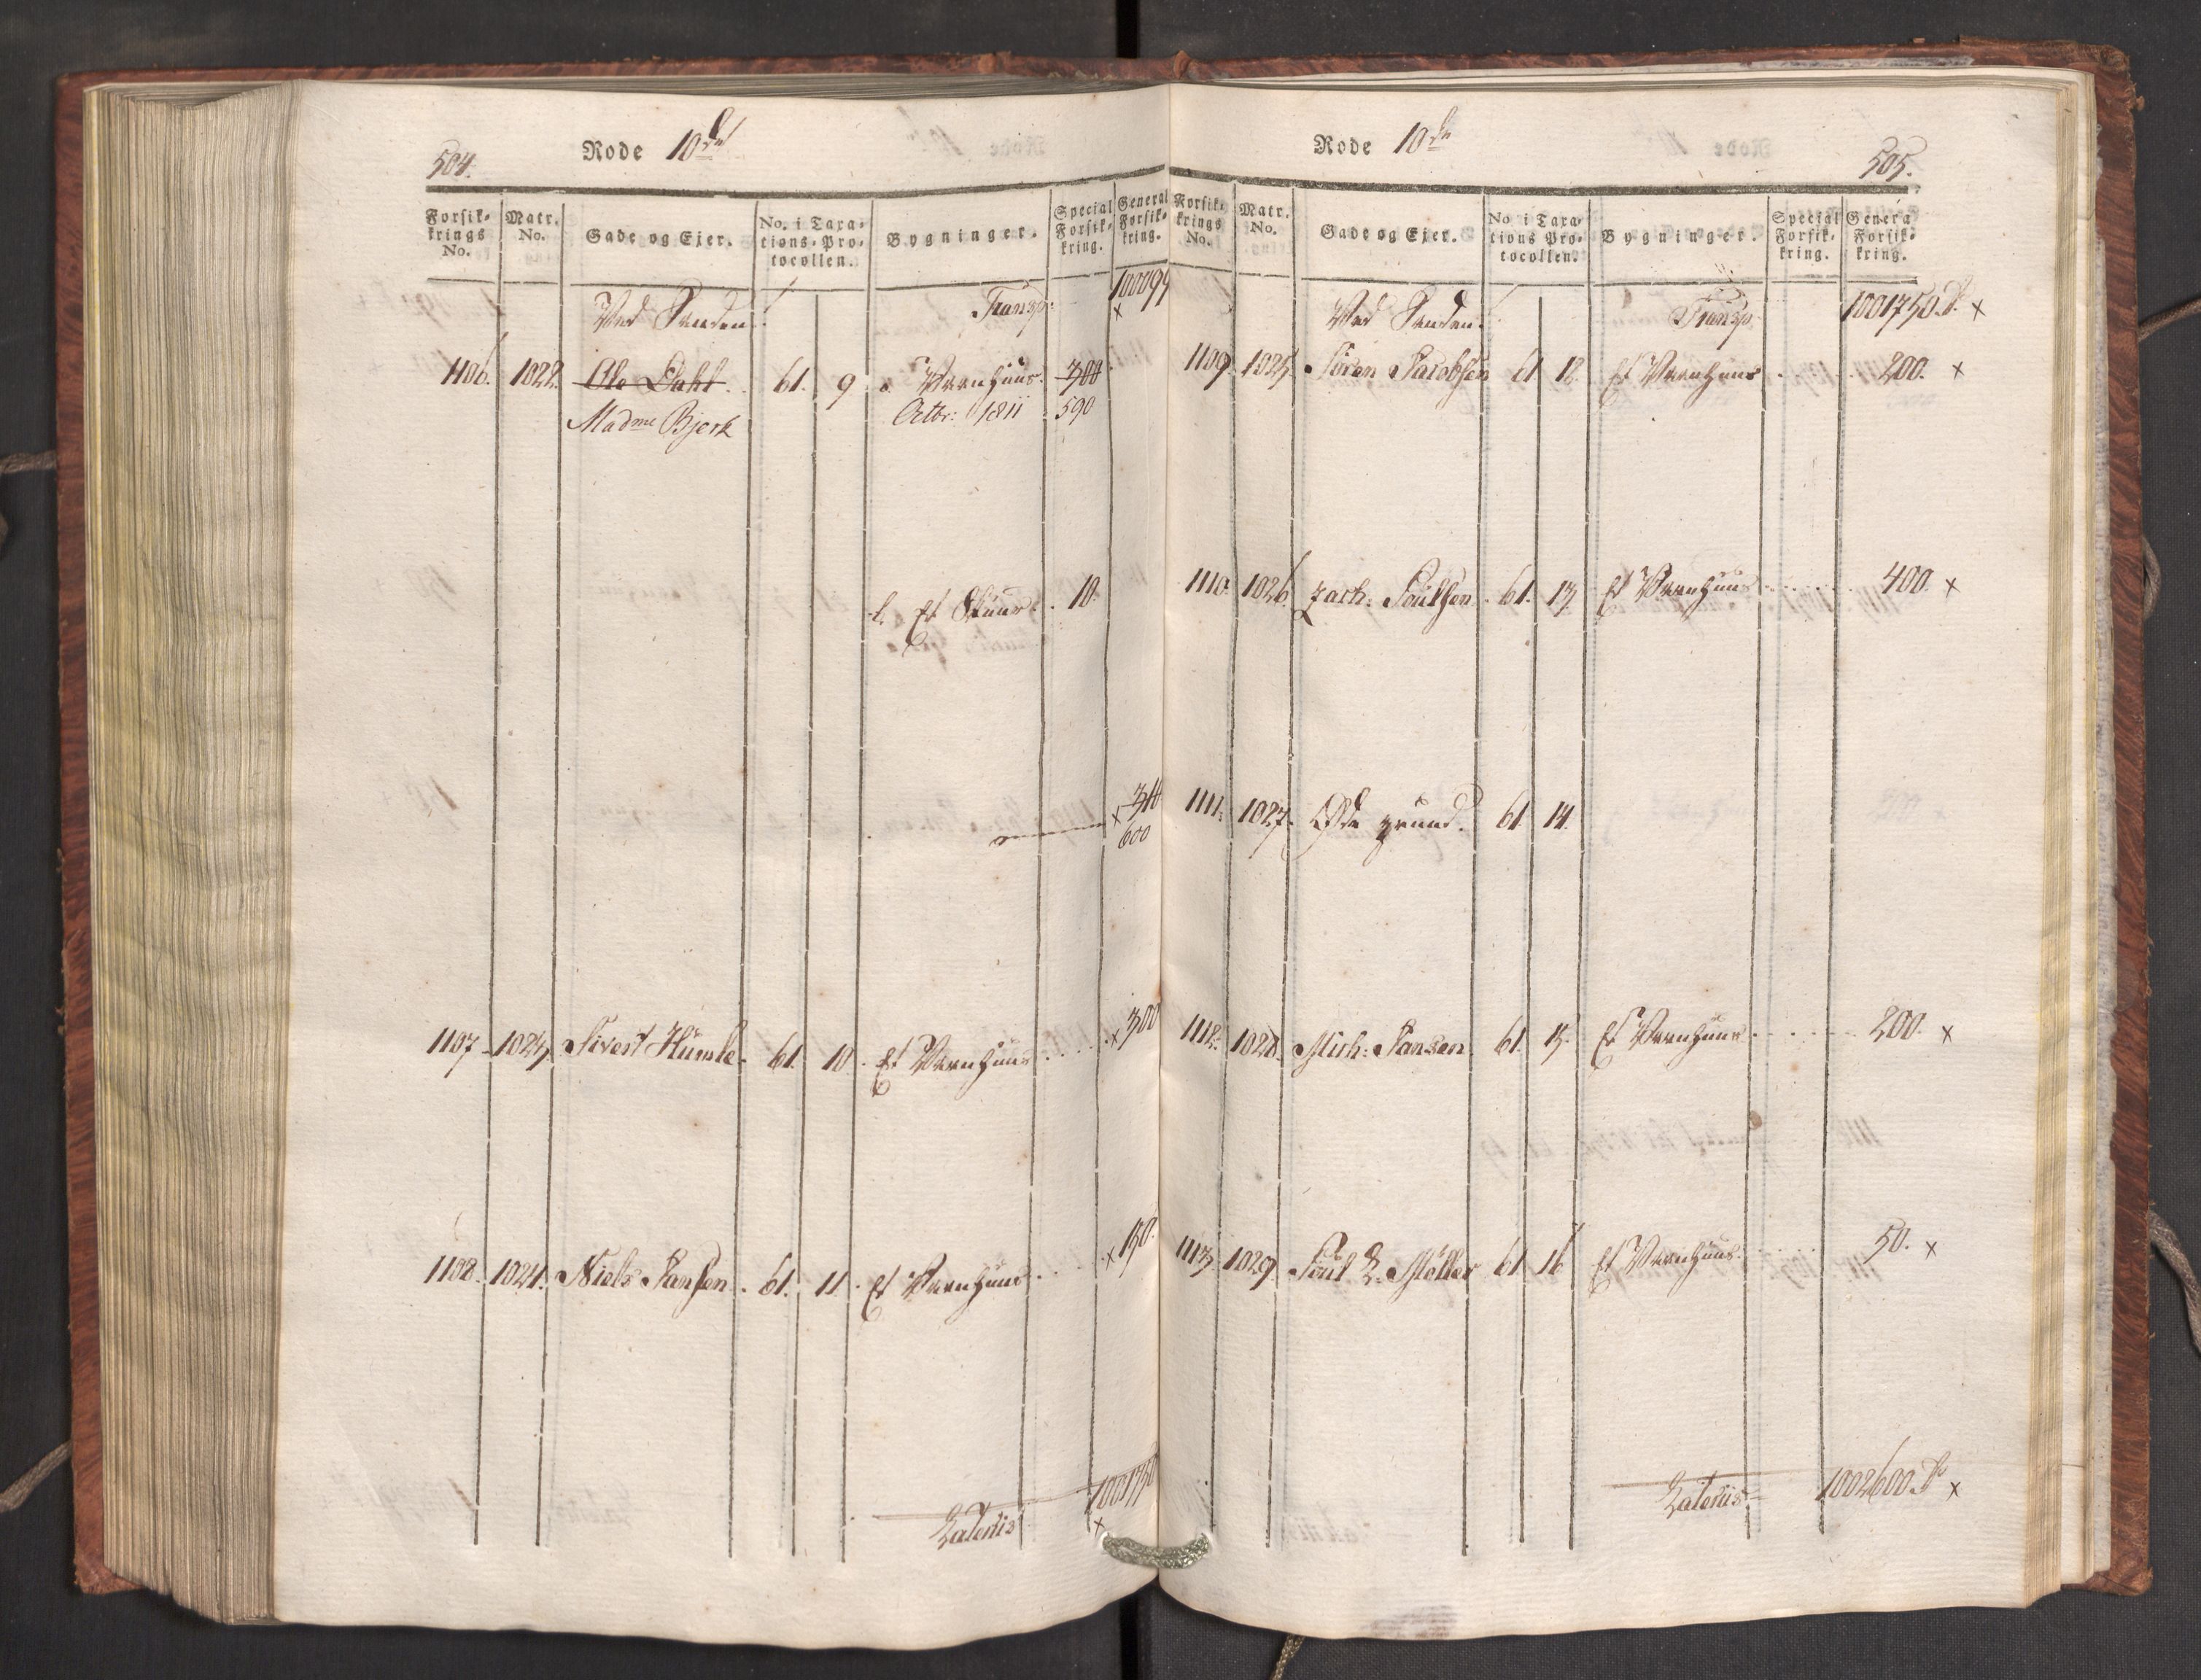 504.
Rode 10de
Forsik-
krings
No.
Matr.
No.
Gade og Ejer.
No. i Taxa-
tions-Pro-
tocollen.
Bygninger.
Special
Forsik-
kring.
General
Forsik-
kring.
Ved Sanden.
Transp:
1106. 1022. Ole Dahl 61. 9. a. Vaanhuus. 300
Madme Bjerk Octbr: 1811 590
b. Et Skuur. 10.
310
600
1107. 1023. Sivert Humle. 61. 10. Et Vaanhuus 300
1108. 1024. Niels Hansen. 61. 11. Et Vaanhuus 150.
Lateriis 1001750
Rode 10de
505.
Forsik-
krings
No.
Matr.
No.
Gade og Ejer.
No. i Taxa-
tions Pro-
tocollen.
Bygninger.
Special
Forsik-
kring.
General
Forsik-
kring.
Ved Sanden.
Transp. 1001750.
1109. 1025. Sören Jacobsen 61 12. Et Vaanhuus 200. x
1110. 1026. Zach: Poulsen. 61. 13. Et Vaanhuus 400. x
1111. 1027. Øde grund. 61. 14.
1112. 1028. Mich: Hansen. 61. 15. Et Vaanhuus 200. x
1113. 1029. Poul L. Möller 61 16 Et Vaanhuus. 50. x
Lateriis 1002600. x